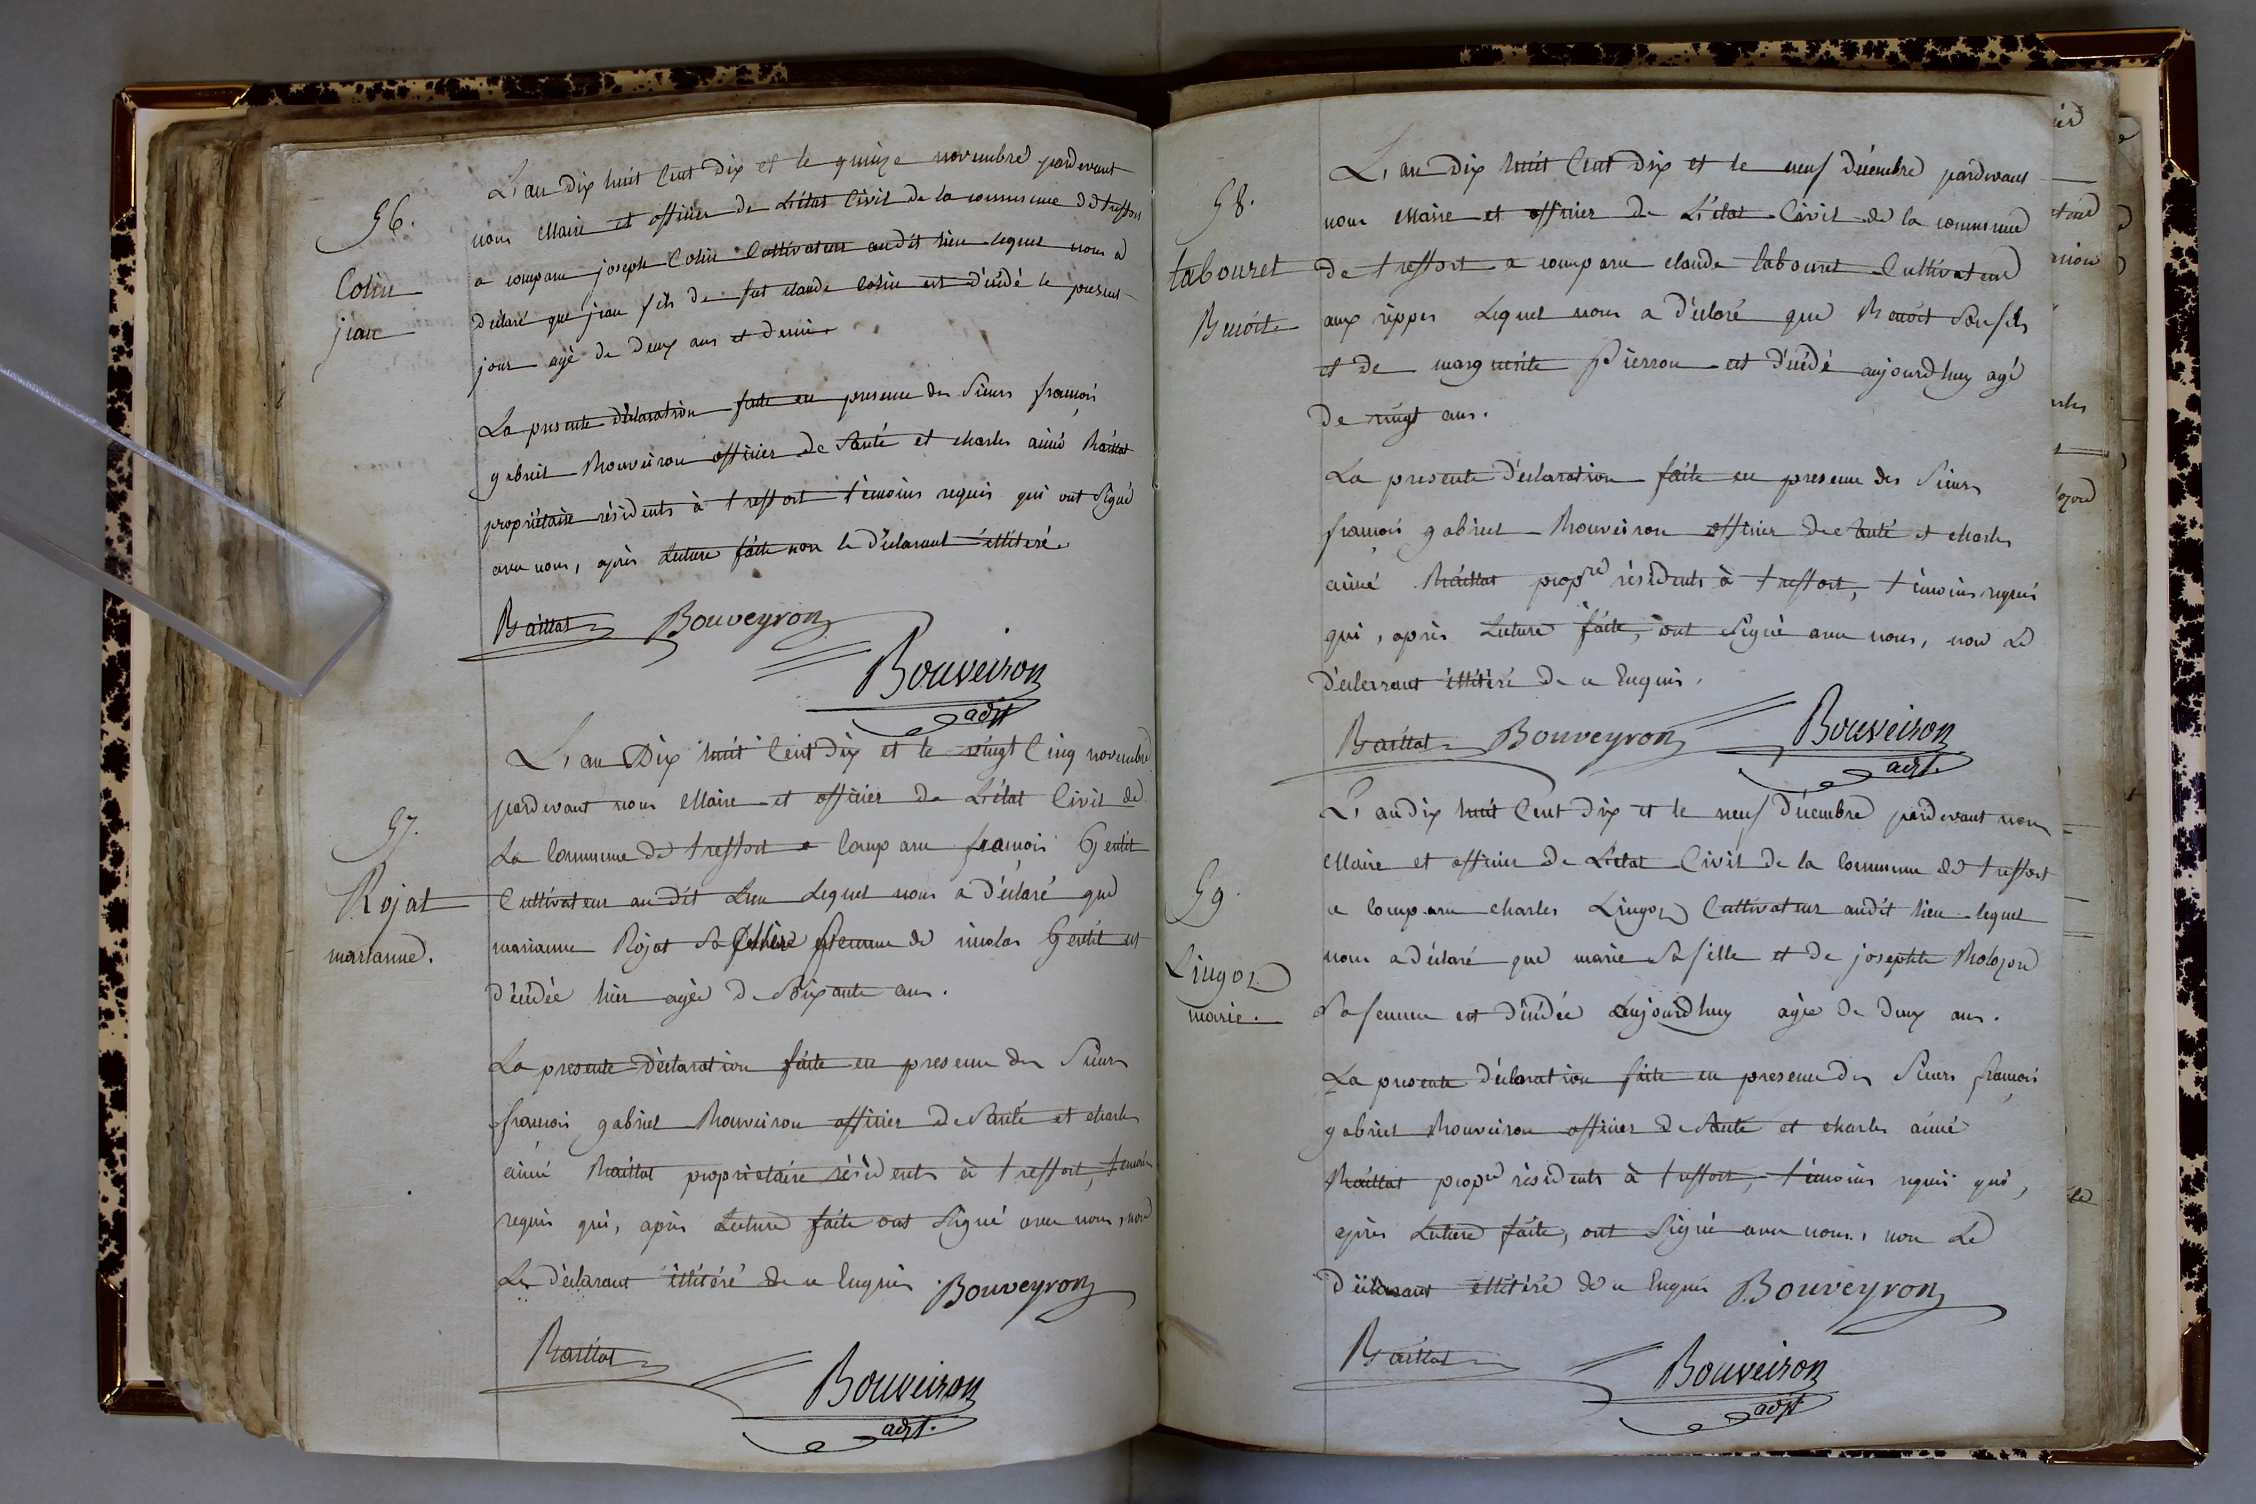 56.
Colin
jean
L'an Dix huit Cent Dix et le quinze novembre pardevant
nous Maire et officier de L'état Civil de la commune de treffort
a comparu joseph Colin Cultivateur audit lieu lequel nous a
déclaré que jean fils de fut claude Colin est décédé le present
jour agé de deux ans et demi
La presente déclaration faite en presence des Sieurs françois
gabriel Bouveiron officier de Santé et charles aimé Baillat
propriétaire résidents à treffort témoins requis qui ont Signé
avec nous, après Lecture faite non le déclarant illitéré
Baillat Bouveyron
Bouveiron
adjt
57.
Rojat
marianne.
L'an Dix huit Cent Dix et le vingt Cinq novembre
pardevant nous Maire et officier de L'état Civil de
La Commune de treffort a Comparu françois Gentil
Cultivateur audit Lieu Lequel nous a déclaré que
marianne Rojat Sa femme de nicolas Gentil est
décédée hier agée de Soixante ans.
La presente déclaration faite en presence des Sieurs
françois gabriel Bouveiron officier de Santé et charles
aimé Baillat propriétaire résidents à treffort, témoins
requis qui, après Lecture faite ont Signé avec nous, non
Le déclarant illitéré de ce Enquis Bouveyron
Baillat
Bouveiron
adjt.
58.
tabouret
Benoit
L'an Dix huit Cent Dix et le neuf Décembre pardevant
nous Maire et officier de L'état Civil de la commune
de treffort a comparu claude tabouret Cultivateur
aux rippes Lequel nous a déclaré que Benoit Son fils
et de marguerite Pierron est décédé aujourdhuy agé
de vingt ans.
La presente déclaration faite en presence des Sieurs
françois gabriel Bouveiron officier de Santé et charles
aimé Baillat propre résidents à treffort, témoins requis
qui, après Lecture faite, ont Signé avec nous, non Le
déclarant illitéré de ce Enquis.
Baillat Bouveyron Bouveiron
adjt.
59.
Lingoz
marie.
L'an dix huit Cent Dix et le neuf Décembre pardevant nous
Maire et officier de L'état Civil de la Commune de treffort
a Comparu charles Lingoz Cultivateur audit lieu lequel
nous a déclaré que marie Sa fille et de josephte Bolozon
Sa femme est décédée aujourdhuy agée de deux ans.
La presente déclaration faite en presence des Sieurs françois
gabriel Bouveiron officier de Santé et charles aimé
Baillat propre résidents à treffort, témoins requis qui,
après Lecture faite, ont Signé avec nous, non Le
déclarant illitéré de ce Enquis Bouveyron
Baillat
Bouveiron
adjt